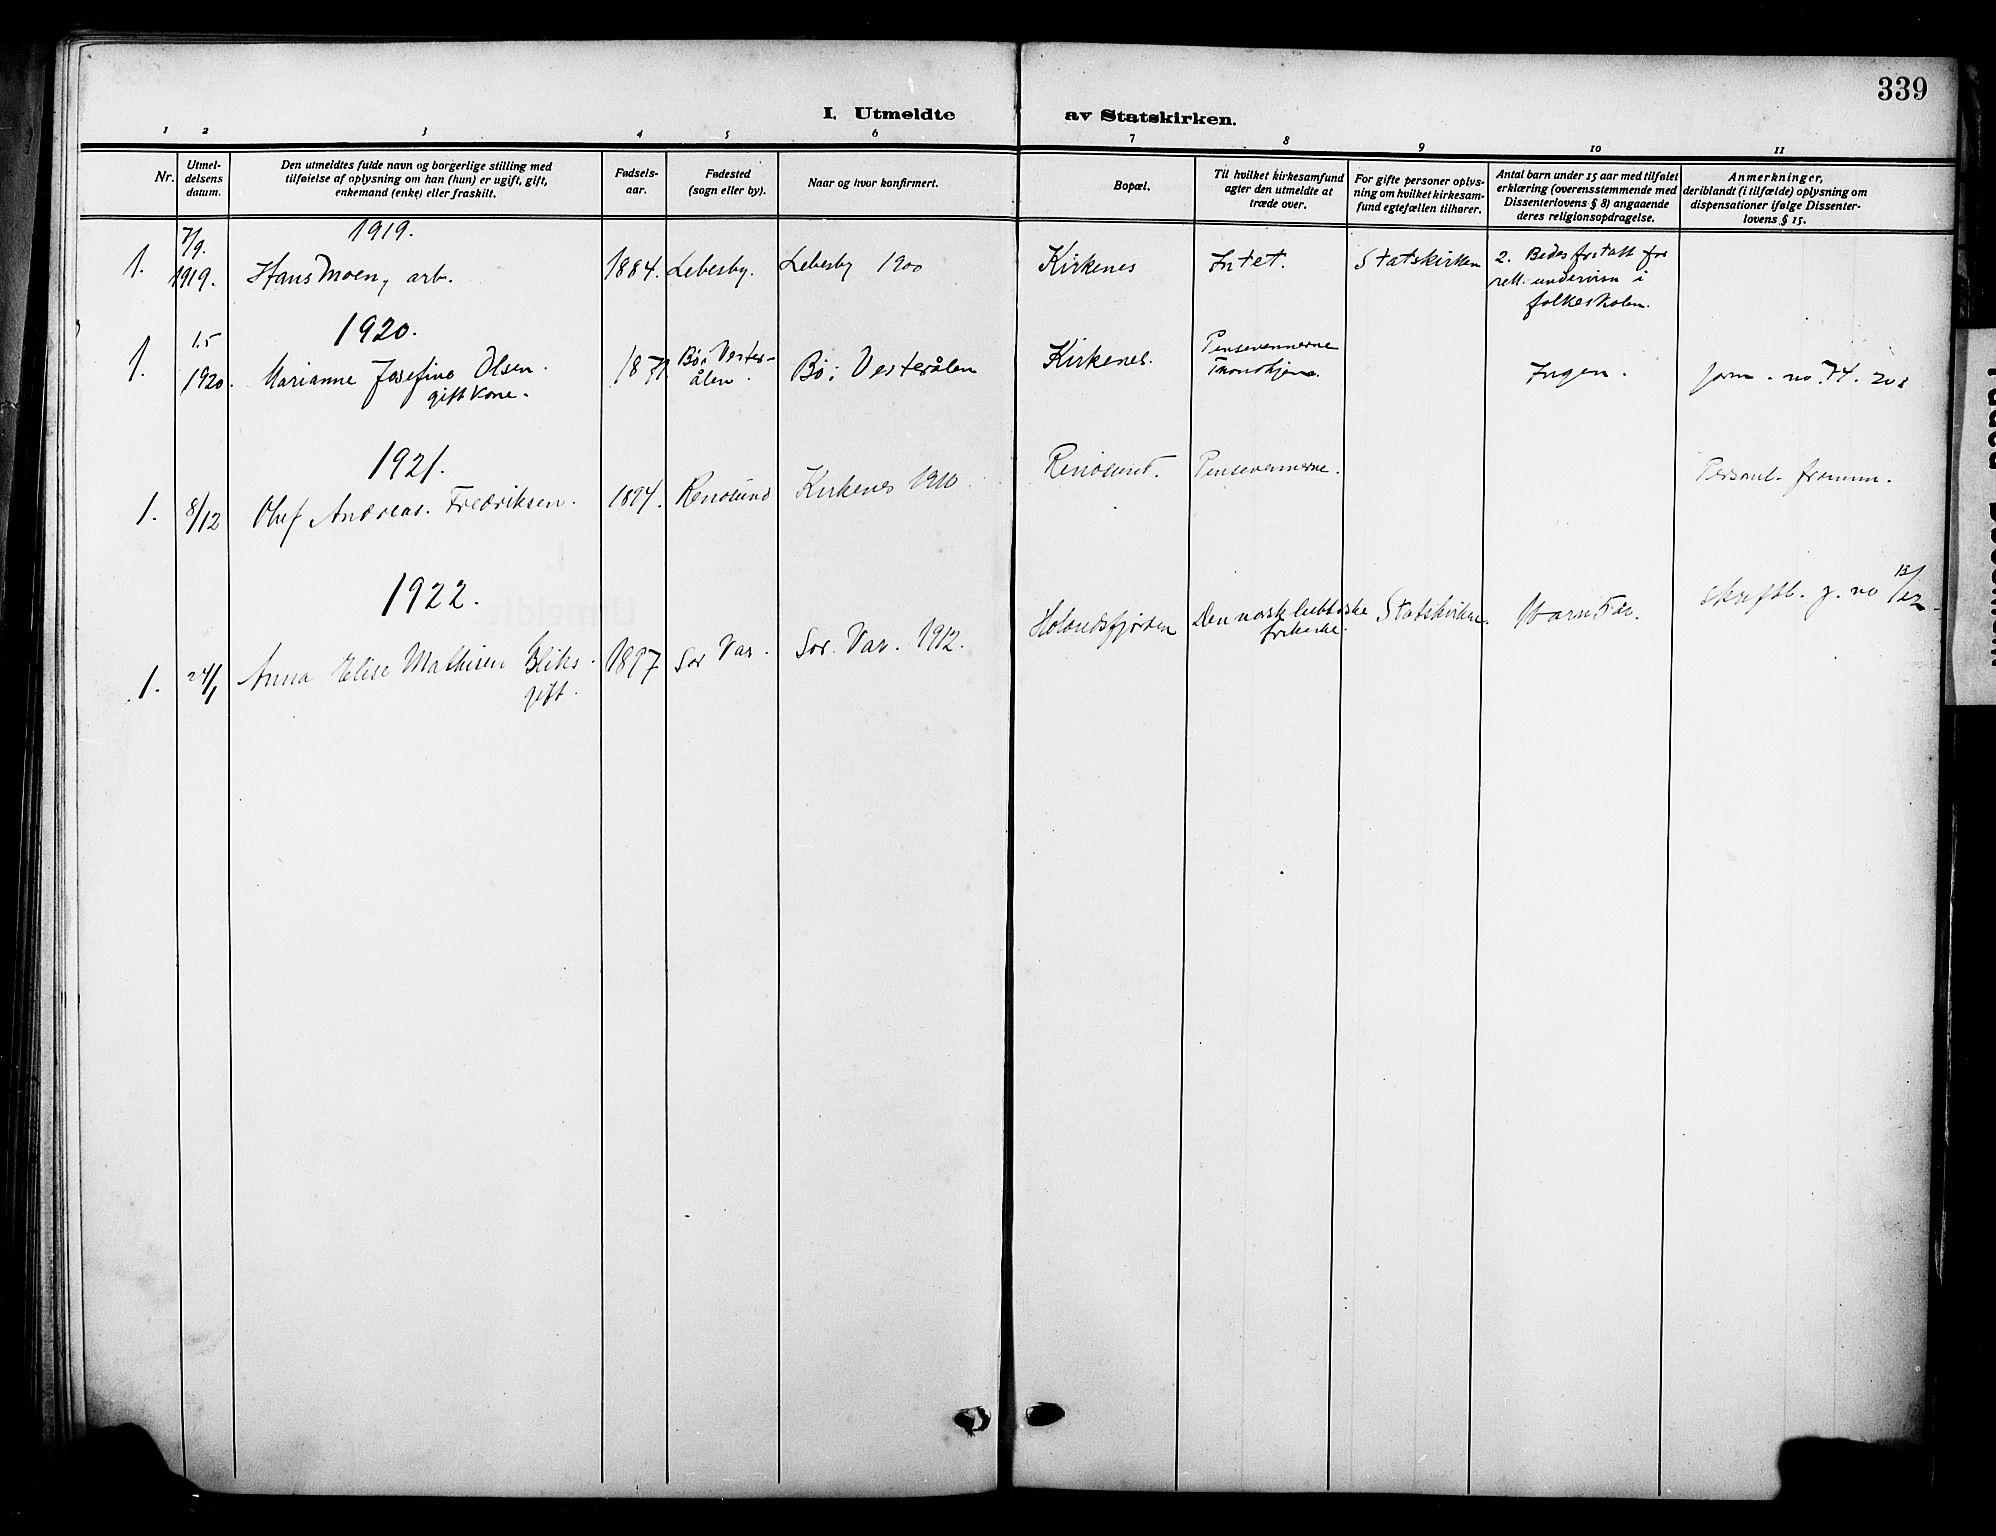 339
I. Utmeldte av Statskirken.
1 2 3 4 5 6 7 8 9 10 11
Nr.
Utmel-
delsens
datum.
Den utmeldtes fulde navn og borgerlige stilling med
tilføielse af oplysning om han (hun) er ugift, gift,
enkemand (enke) eller fraskilt.
Fødsels-
aar.
Fødested
(sogn eller by).
Naar og hvor konfirmert.
Bopæl.
Til hvilket kirkesamfund
agter den utmeldte at
træde over.
For gifte personer oplys-
ning om hvilket kirkesam-
fund egtefællen tilhører.
Antal barn under 15 aar med tilføiet
erklæring (overensstemmende med
Dissenterlovens § 8) angaaende
deres religionsopdragelse.
Anmerkninger,
deriblandt (i tilfælde) oplysning om
dispensationer ifølge Dissenter-
lovens § 15.
1919.
1.
7/9.
1919.
Hans Moen, arb.
1884.
Lebesby.
Lebesby 1900
Kirkenes
Intet.
Statskirken
2. Bedes fritatt for
rell. undervisn i
folkeskolen.
1920.
1.
1.5
1920.
Marianne Josefine Olsen.
gift kone.
1871.
Bø i Vester-
ålen.
Bø i Vesterålen
Kirkenes.
Pinsevennerne
Trondhjem.
Ingen.
jorn. no. 74. 20
1921.
1.
8/12
Oluf Andreas. Fredriksen.
1894.
Renøsund
Kirkenes 1910.
Renøsund.
Pinsevennerne.
Personl. fremm.
1922.
1.
24/1
Anna Elise Mathisen Bliks.
gift.
1897
Sør Var.
Sør. Var. 1912.
Holmdsfjorden
Den norsk lutherske
frikirke.
Statskirken.
Skriftl. j. no 13/22